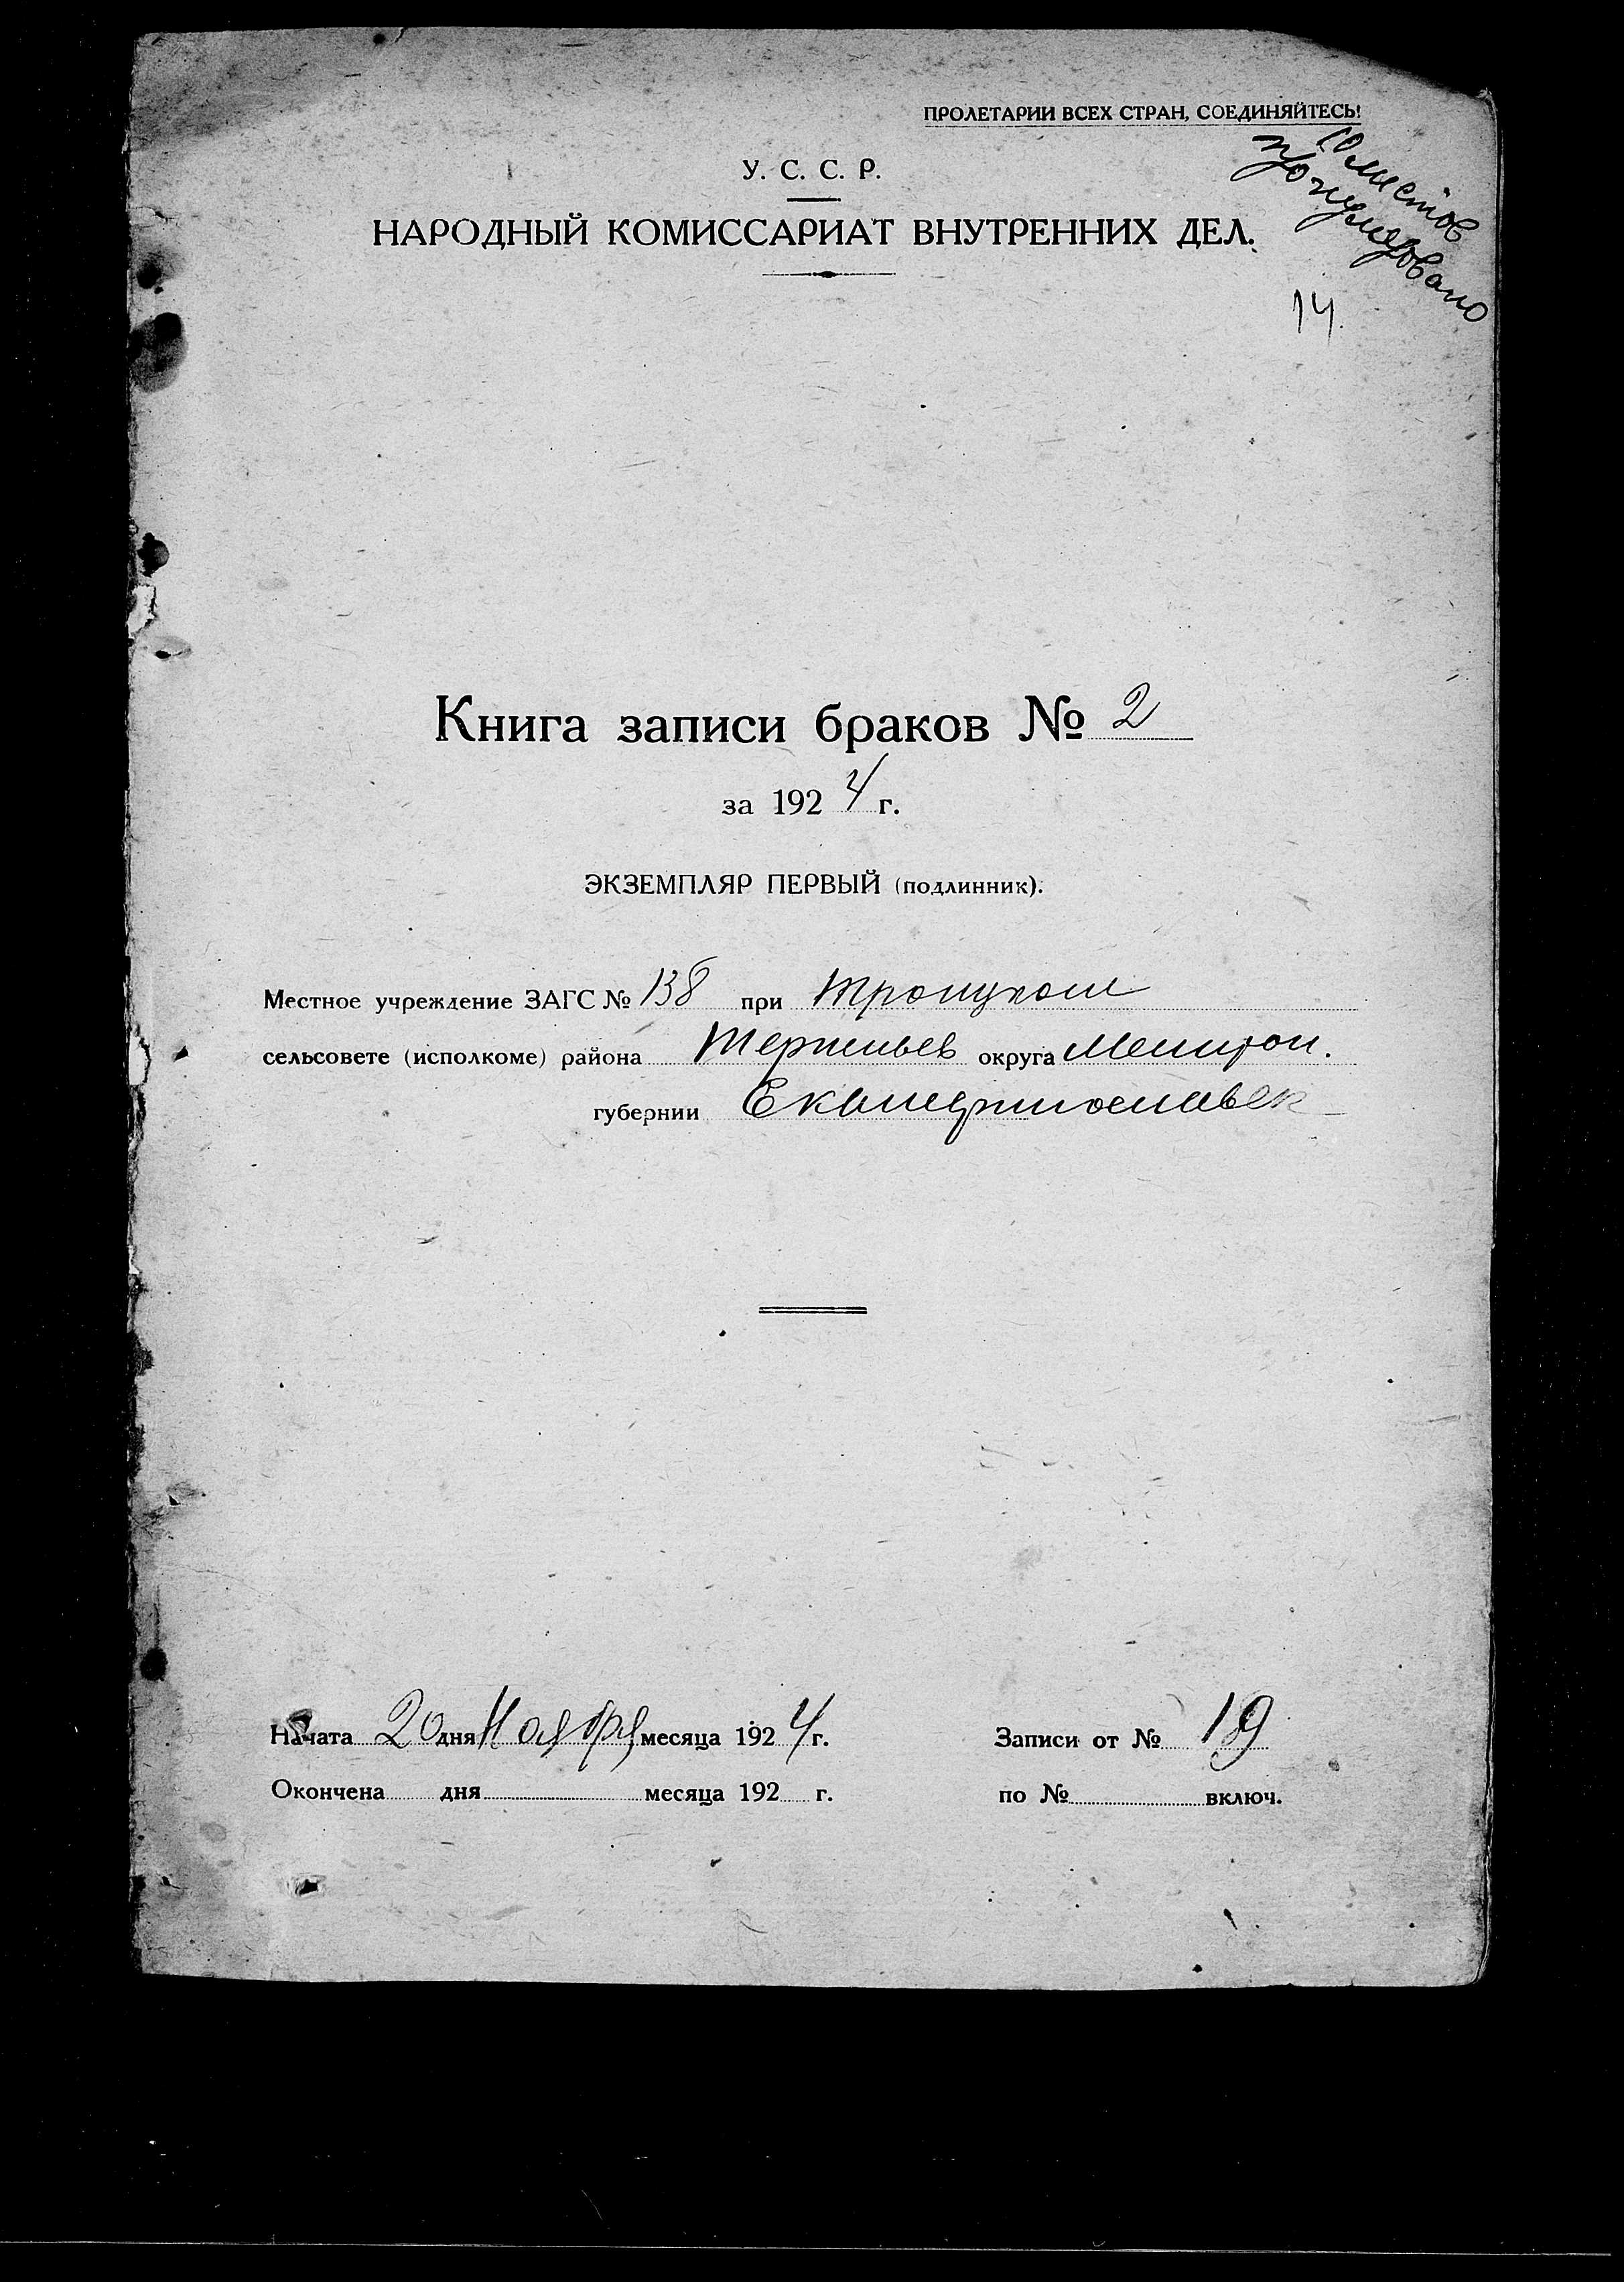 ПРОЛЕТАРИИ ВСЕХ СТРАН, СОЕДИНЯЙТЕСЬ!
листов
пронумеровано
14.
У. С. С. Р.
НАРОДНЫЙ КОМИССАРИАТ ВНУТРЕННИХ ДЕЛ.
Книга записи браков № 2
за 1924 г.
ЭКЗЕМПЛЯР ПЕРВЫЙ (подлинник).
Местное учреждение ЗАГС № 138 при Троицком
сельсовете (исполкоме) района округа Мелитоп.
губернии Екатеринославск
Начата 20 дня Ноября месяца 1924 г.
Окончена дня месяца 192 г.
Записи от № 19
по № включ.